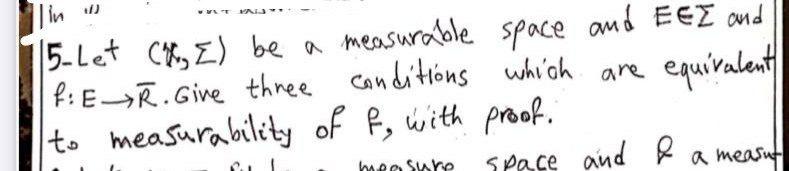 in
5-Let (X, Σ) be a measurable space and E∈Σ and
f: E→R̅. Give three conditions which are equivalent
to measurability of f, with proof.
measure space and f a measu